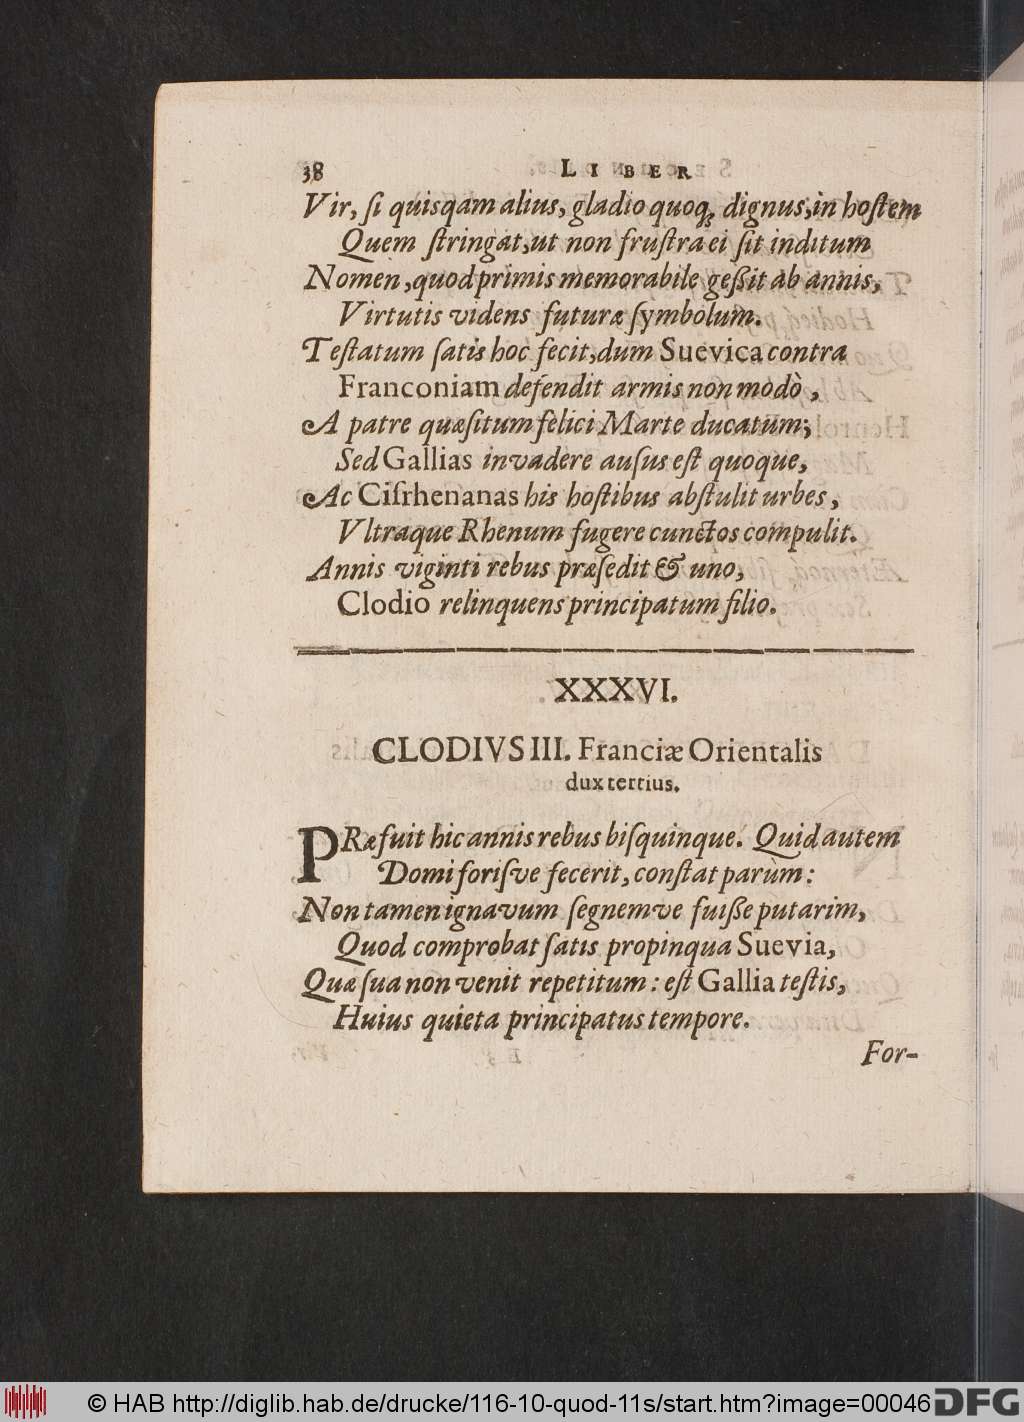 38 LIBER
Vir, ſi quisqam alius, gladio quoqꝫ dignus, in hoſtem
Quem ſtringat, ut non fruſtra ei ſit inditum
Nomen, quod primis memorabile geßit ab annis,
Virtutis videns futuræ ſymbolum.
Teſtatum ſatis hoc fecit, dum Suevica contra
Franconiam defendit armis non modò,
A patre quæſitum felici Marte ducatum;
Sed Gallias invadere auſus eſt quoque,
Ac Ciſrhenanas his hoſtibus abſtulit urbes,
Vltraque Rhenum fugere cunctos compulit.
Annis viginti rebus præſedit & uno,
Clodio relinquens principatum filio.
XXXVI.
CLODIVS III. Franciæ Orientalis
dux tertius.
PRæfuit hic annis rebus biſquinque. Quid autem
Domi foriſve fecerit, conſtat parùm:
Non tamen ignavum ſegnemve fuiße putarim,
Quod comprobat ſatis propinqua Suevia,
Quæ ſua non venit repetitum: eſt Gallia teſtis,
Huius quieta principatus tempore.
For-
© HAB http://diglib.hab.de/drucke/116-10-quod-11s/start.htm?image=00046 DFG